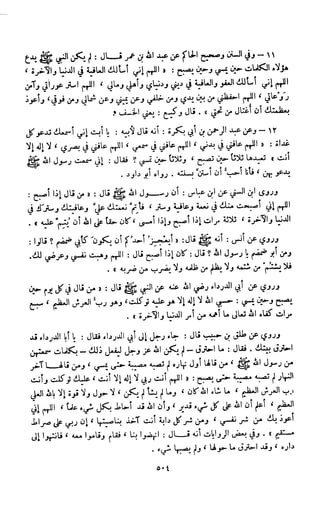 ١١ – وفي السنن وصحيح الحاكم عن عبد الله بن عمر قال: لم يكن النبي ﷺ يدع
هؤلاء الكلمات حين يمسي وحين يصبح: « اللهم إني أسألك العافية في الدنيا والآخرة ،
اللهم إني أسألك العفو والعافية في ديني ودنياي وأهلي ومالي ، اللهم استر عوراتي وآمن
روعاتي ، اللهم احفظني من بين يدي ومن خلفي وعن يميني وعن شمالي ومن فوقي ، وأعوذ
بعظمتك أن أغتال من تحتي » . قال وكيع : يعني الخسف .
١٢ – وعن عبد الرحمن بن أبي بكرة : أنه قال لأبيه : يا أبت إني أسمعك تدعو كل
غداة : « اللهم عافني في بدني ، اللهم عافني في سمعي ، اللهم عافني في بصري ، لا إله إلا
أنت » تعيدها ثلاثاً حين تصبح ، وثلاثاً حين تمسي ؟ فقال : إني سمعت رسول الله ﷺ
يدعو بهن ، فأنا أحب أن أستن بسنته . رواه أبو داود .
وروى ابن السني عن ابن عباس : أن رسول الله ﷺ قال : « من قال إذا أصبح :
اللهم إني أصبحت منك في نعمة وعافية وستر ، فأتم نعمتك علي وعافيتك وسترك في
الدنيا والآخرة ، ثلاثة مرات إذا أصبح وإذا أمسى ، كان حقاً على الله أن يُتِم عليه » .
وروي عن أنس : أنه ﷺ قال : « أيعجز أحدكم أن يكون كأبي ضمضم ؟ قالوا :
ومن أبو ضمضم يا رسول الله ؟ قال : كان إذا أصبح قال : اللهم وهبت نفسي وعرضي لك.
فلا يشتم من شتمه ولا يظلم من ظلمه ولا يضرب من ضربه » .
وروي عن أبي الدرداء رضي الله عنه عن النبي ﷺ قال : « من قال في كل يوم حين
يصبح وحين يمسي : حسبي الله لا إله إلا هو عليه توكلت ، وهو رب العرش العظيم ، سبع
مرات كفاه الله تعالى ما أهمه من أمر الدنيا والآخرة » .
وروي عن طلق بن حبيب قال : جاء رجل إلى أبي الدرداء فقال : يا أبا الدرداء قد
احترق بيتك . فقال : ما احترق – لم يكن الله عز وجل ليفعل ذلك – بكلمات سمعتهن
من رسول الله ﷺ ، من قالها أول نهاره لم تصبه مصيبة حتى يمسي ، ومن قالها آخر
النهار لم تصبه مصيبة حتى يصبح : « اللهم أنت ربي لا إله إلا أنت ، عليك توكلت وأنت
رب العرش العظيم ، ما شاء الله كان ، وما لم يشأ لم يكن ، لا حول ولا قوة إلا بالله العلي
العظيم ، أعلم أن الله على كل شيء قدير ، وأن الله قد أحاط بكل شيء علماً ، اللهم إني
أعوذ بك من شر نفسي ، ومن شر كل دابة أنت آخذ بناصيتها ، إن ربي على صراط
مستقيم » . وفي بعض الروايات أنه قال : انهضوا بنا ، فقام وقاموا معه ، فانتهوا إلى
داره ، وقد احترق ما حولها ، ولم يصبها شيء .
٥٠٤